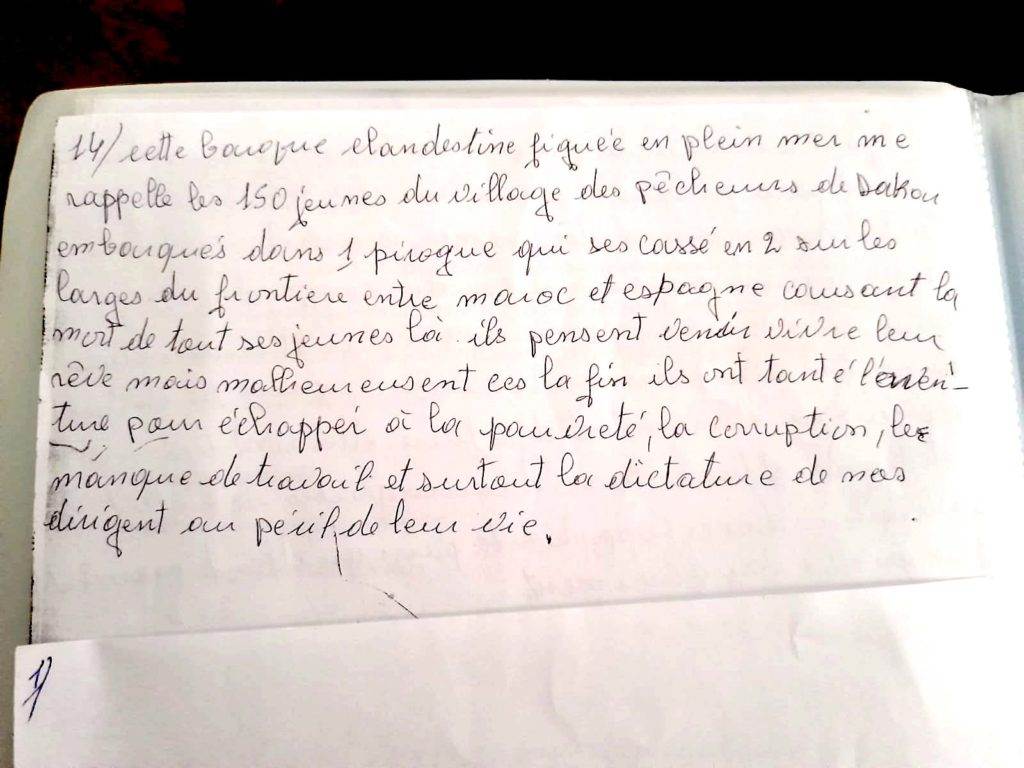 14/ cette barque clandestine figuée en plein mer me
rappelle les 150 jeunes du village des pêcheurs de Dakou
embarqués dans 1 pirogue qui ses cassé en 2 sur les
larges du frontiere entre maroc et espagne causant la
mort de tout ses jeunes là. ils pensent venir vivre leur
rêve mais malheureusent ces la fin ils ont tanté l'aven-
ture pour échapper à la pauvreté, la corruption, le
manque de travail et surtout la dictature de nos
dirigent au péril de leur vie.
1/